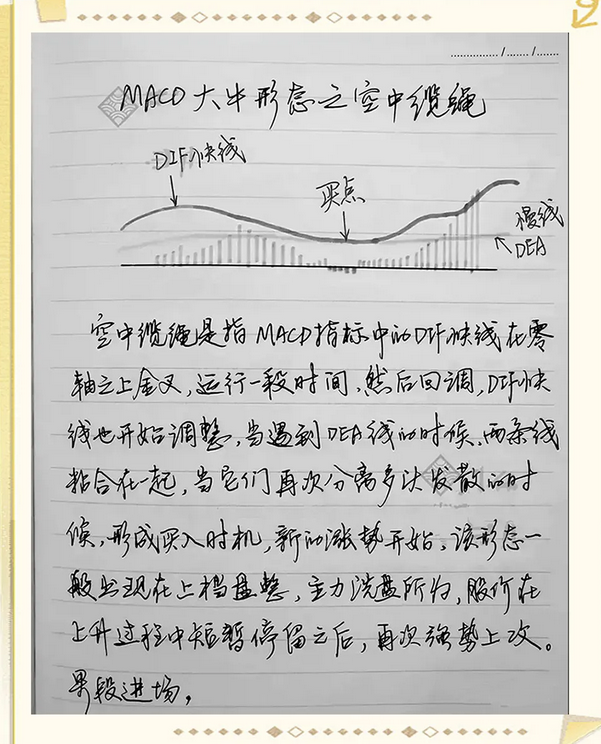 MACD大牛形态之空中缆绳
DIF快线
买点
慢线
DEA
空中缆绳是指MACD指标中的DIF快线在零
轴之上金叉,运行一段时间,然后回调,DIF快
线也开始调整,当遇到DEA线的时候,两条线
粘合在一起,当它们再次分离多头发散的时
候,形成买入时机,新的涨势开始。该形态一
般出现在上档盘整,主力洗盘所为,股价在
上升过程中短暂停留之后,再次强势上攻。
果段进场,